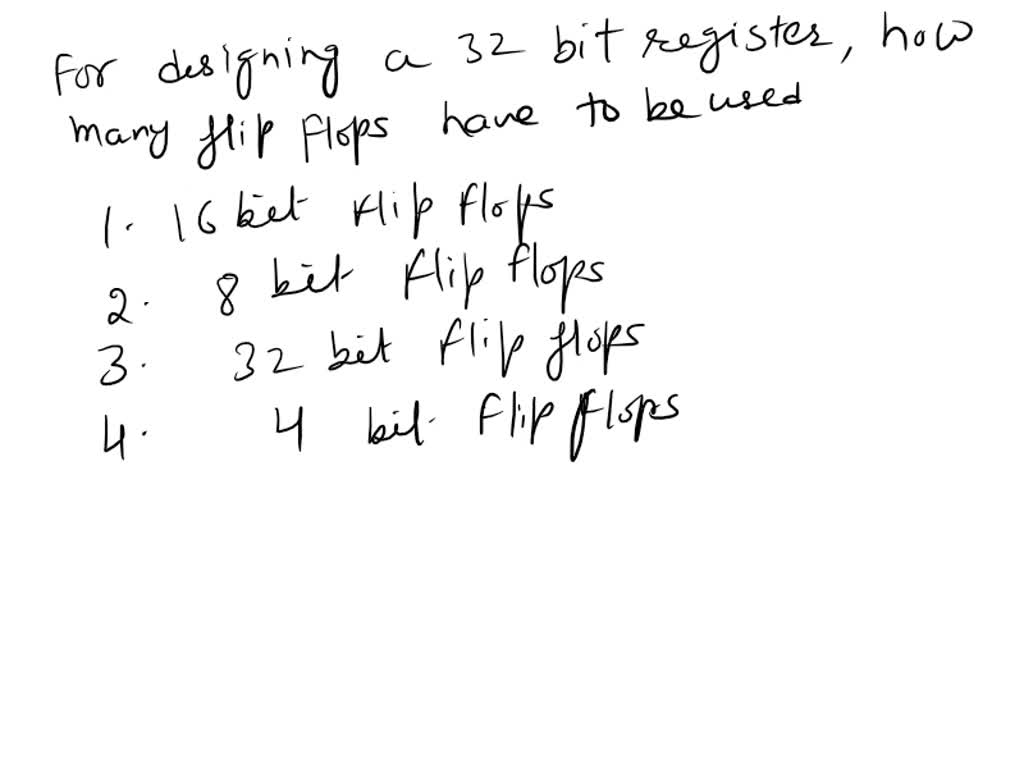 For designing a 32 bit register, how
many flip flops have to be used
1. 16 bit flip flops
2. 8 bit flip flops
3. 32 bit flip flops
4. 4 bit flip flops